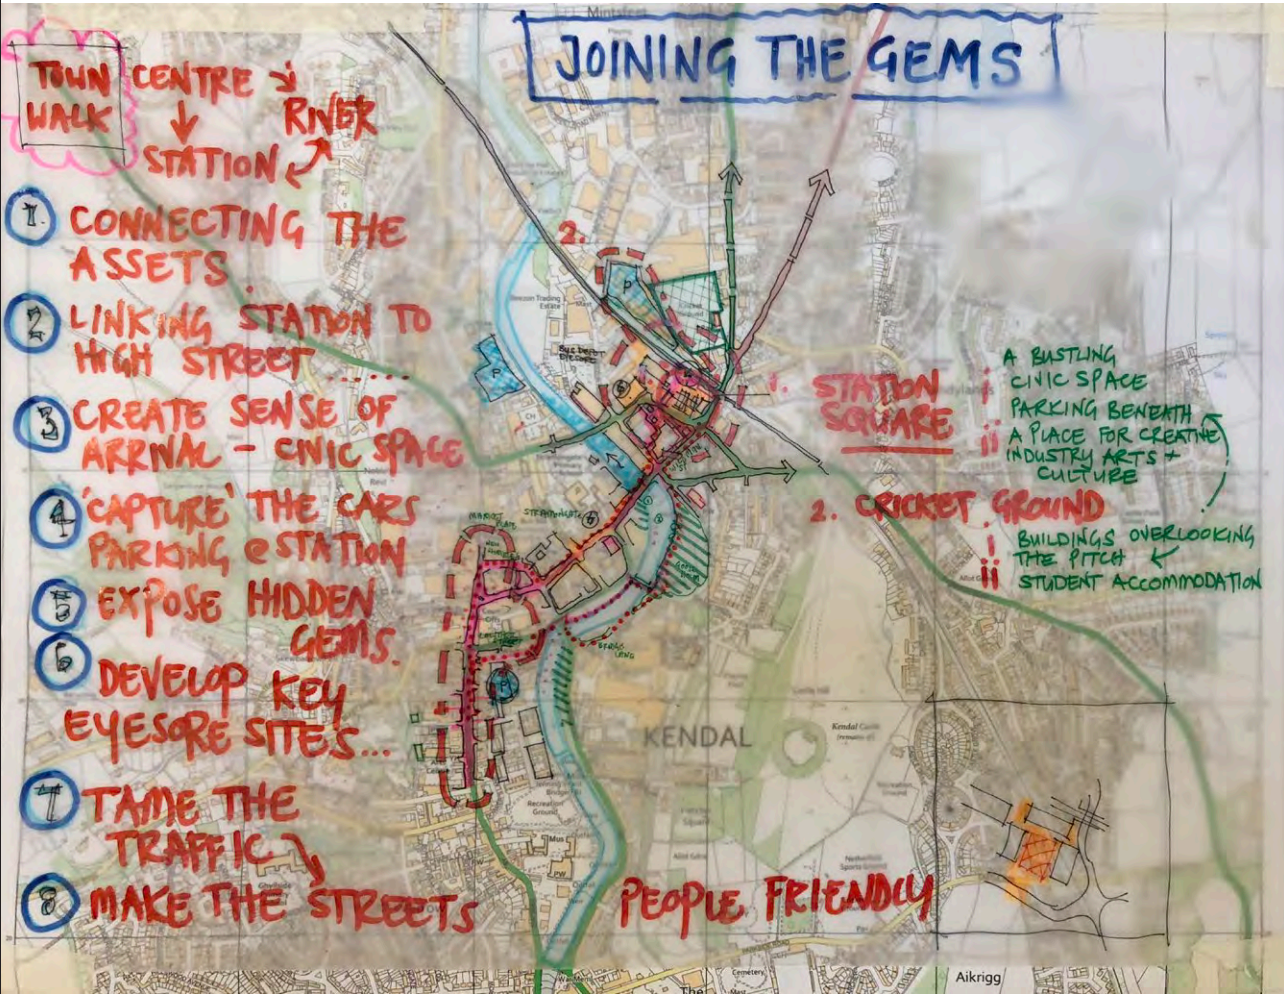 JOINING THE GEMS
TOWN
WALK
CENTRE
RIVER
STATION
1 CONNECTING THE
ASSETS
2 LINKING STATION TO
HIGH STREET ......
3 CREATE SENSE OF
ARRIVAL - CIVIC SPACE
4 'CAPTURE' THE CARS
PARKING @ STATION
5 EXPOSE HIDDEN
GEMS.
6 DEVELOP KEY
EYESORE SITES...
7 TAME THE
TRAFFIC
8 MAKE THE STREETS
PEOPLE FRIENDLY
2.
P
P
1. STATION
SQUARE
i A BUSTLING
CIVIC SPACE
PARKING BENEATH
ii A PLACE FOR CREATIVE
INDUSTRY ARTS +
CULTURE
2. CRICKET GROUND
i BUILDINGS OVERLOOKING
THE PITCH
ii STUDENT ACCOMMODATION
MARKET
PLACE
KENDAL
Kendal Castle
(remains of)
Castle Hill
Recreation
Ground
Mus
PW
Netherfield
Sports Ground
Cemetery
The
Aikrigg